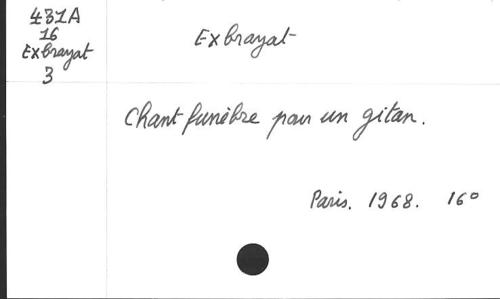 431A
16
Exbrayat
3
Exbrayat
Chant funèbre pour un gitan.
Paris. 1968. 16°